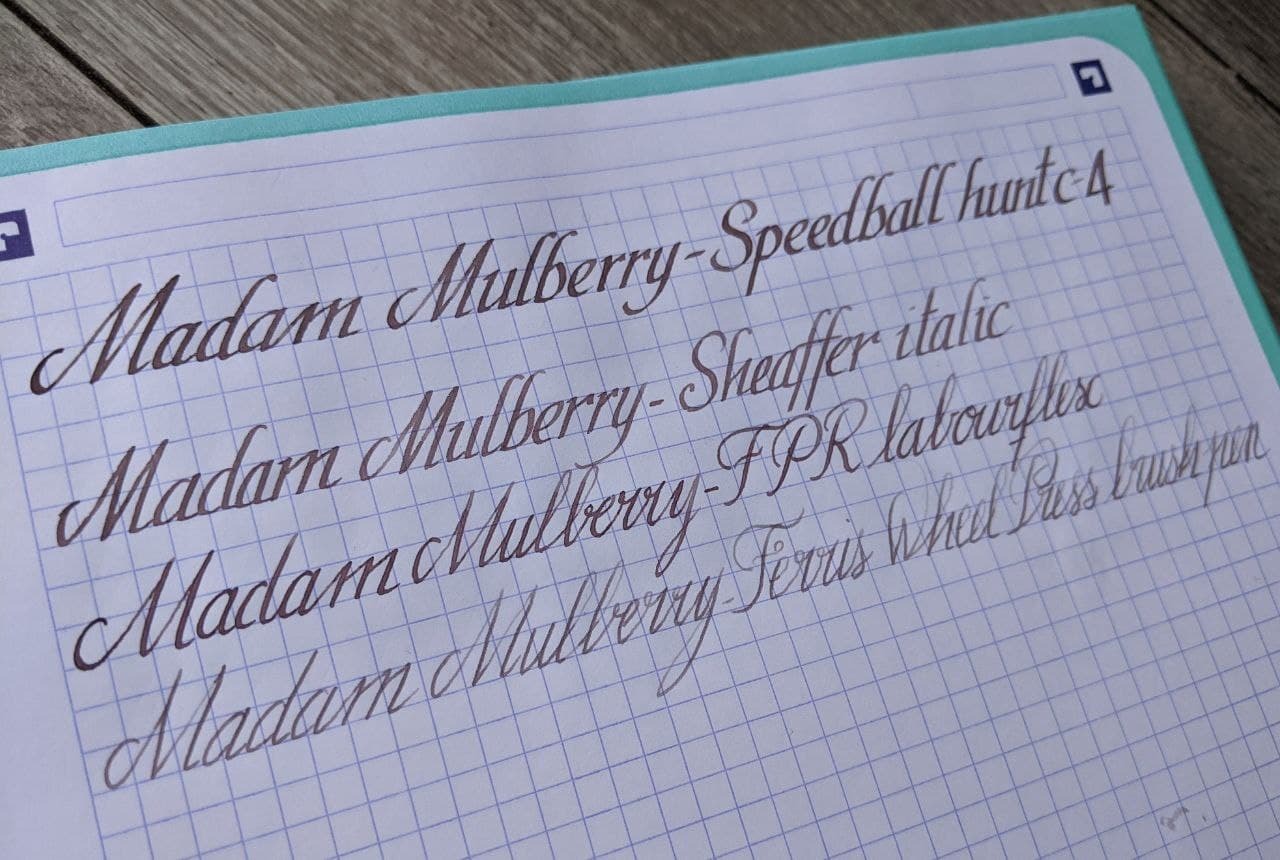 Madam Mulberry-Speedball hunt c-4
Madam Mulberry- Sheaffer italic
Madam Mulberry-FPR labourflex
Madam Mulberry-Ferris Wheel Press brush pen